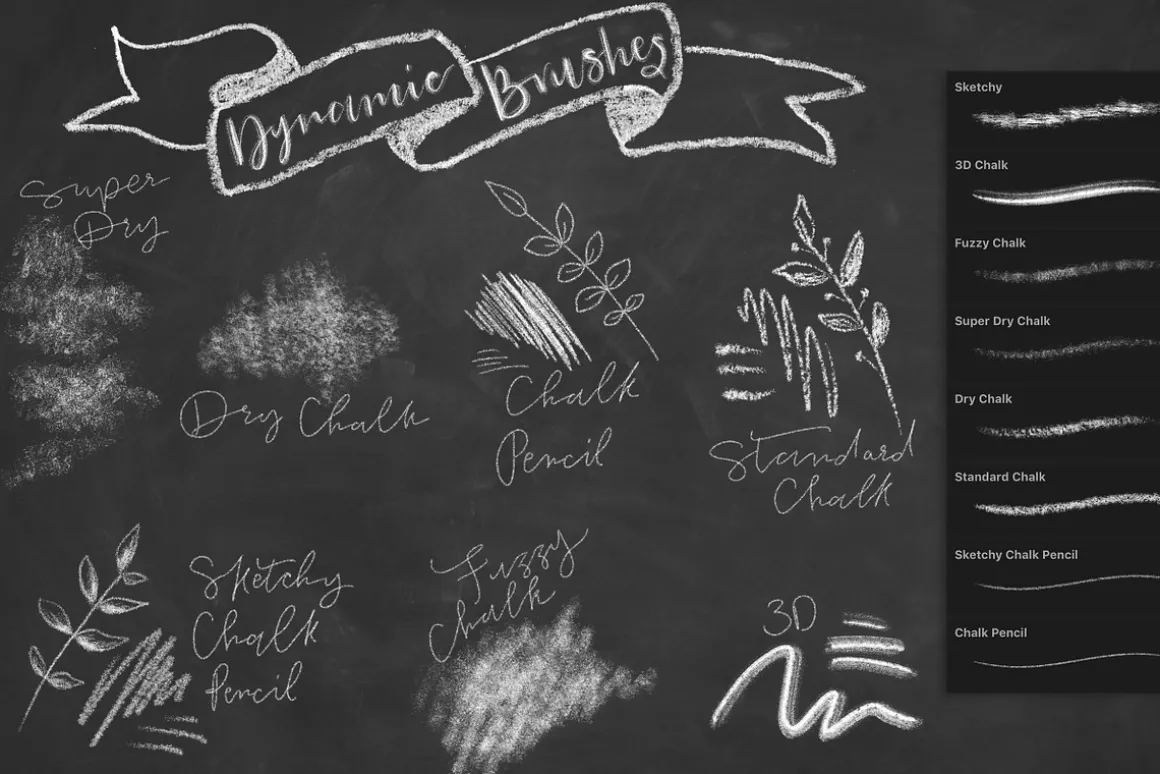 Dynamic Brushes
Super
Dry
Dry Chalk
Chalk
Pencil
Standard
Chalk
Sketchy
Chalk
Pencil
Fuzzy
Chalk
3D
Sketchy
3D Chalk
Fuzzy Chalk
Super Dry Chalk
Dry Chalk
Standard Chalk
Sketchy Chalk Pencil
Chalk Pencil